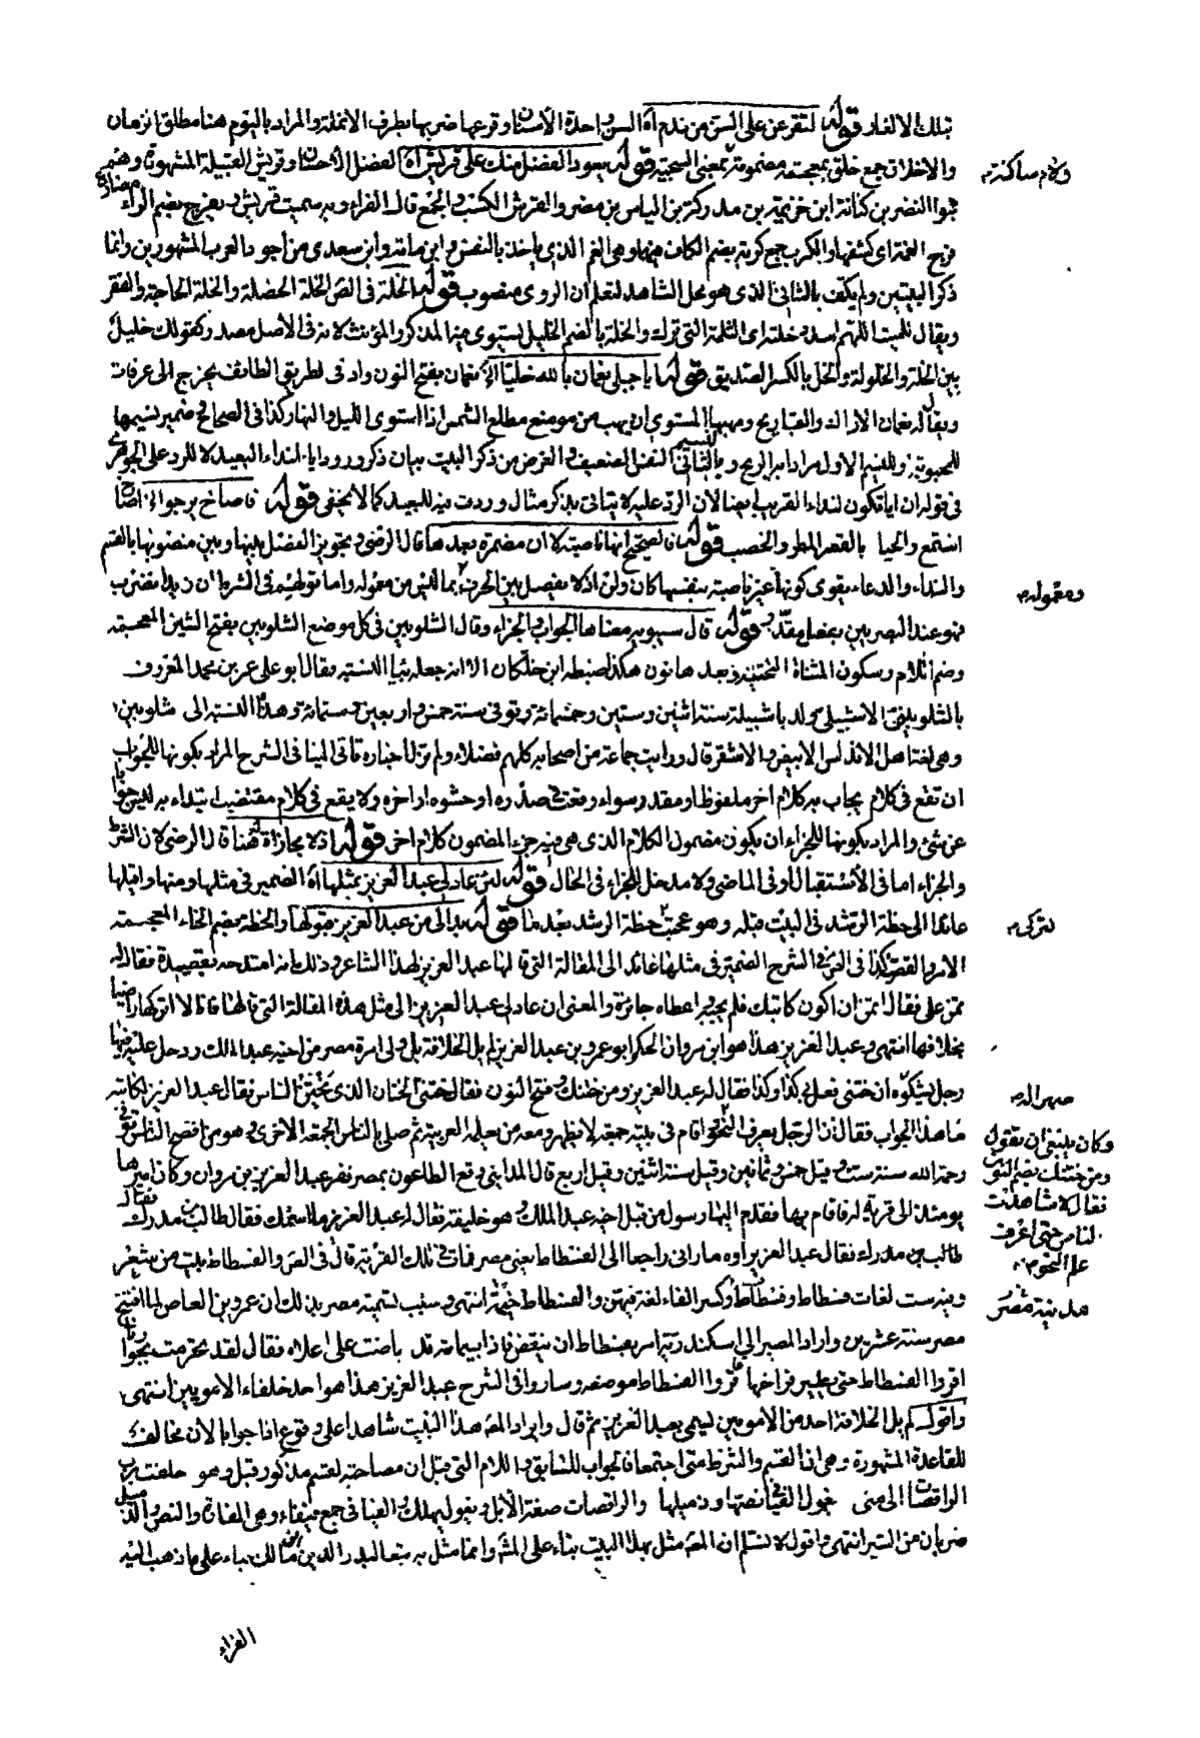 بتلك الالغار قوله لتقرعن على السن من ندم اه السن واحدة الأسنان وقرعها ضربها بطرف الانملة والمراد باليوم هنا مطلق الزمان
والاخلاق جمع خلق بمعجمة مضمومة بمعنى السجية قوله يعود الفضل منك على قريش اه الفضل الاحسان وقريش القبيلة المشهورة وهم
ولام ساكنة
بنوا النضر بن كنانة ابن خزيمة بن مدركة بن الياس بن مضر والقرش الكسب والجمع قاله الفراء وبه سميت قريش وتفرج بضم الراء مضارع
فرج الغمة اى كشفها والكرب جمع كربة بضم الكاف فيهما وهى الغم الذى يأخذ بالنفس وابن مامة وابن سعدى من أجود العرب المشهورين وانما
ذكر البيتين ولم يكتف بالثانى الذى هو محل الشاهد لتعلم أن الروى منصوب قوله الخلة فى الص الخلة الخصلة والخلة الحاجة والفقر
ويقال للميت اللهم اسدد خلته اى الثلمة التى ترك والخلة بالضم الخليل يستوى فيه المذكر والمؤنث لانه فى الأصل مصدر كقولك خليل
بين الخلة والخلولة والخل بالكسر الصديق قوله ايا جبلى نعمان بالله خليا الخ نعمان بفتح النون واد فى طريق الطائف يخرج الى عرفات
ويقال له نعمان الاراك والصبا ريح ومهبها المستوى ان يهب من موضع مطلع الشمس اذا استوى الليل والنهار كذا فى الصحاح وضمير نسيمها
للمحبوبة وبالنسيم الاول مرادا به الريح وبالثانى النفس الضعيف والغرض من ذكر البيت بيان ذكر ورود ايا لنداء البعيد للرد على الجوهرى
فى قوله ان ايا تكون لنداء القريب ايضا لان الرد عليه لا يتاتى بذكر مثال وردت فيه للبعيد كما لا يخفى قوله فاصاخ يرجو الخ اصاخ
استمع والحيا بالقصر المطر والخصب قوله فالصحيح انها ناصبة لا ان مضمرة بعدها قال الرضى وتجويز الفصل بينها وبين منصوبها بالقسم
والنداء والدعاء يقوى كونها غير ناصبة بنفسها كان ولن اذ لا يفصل بين الحرف بما ليس من معموله واما قولهم فى الشرط ان زيدا تضرب
ومعموله
فهو عند البصريين بفعل مقدر قوله قال سيبويه معناها الجواب والجزاء وقال الشلوبين فى كل موضع الشلوبين بفتح الشين المعجمة
وضم اللام وسكون المثناة التحتية وبعدها نون هكذا ضبطه ابن خلكان الا انه جعله بيا النسبة فقال ابو على عمر بن محمد المعروف
بالشلوبينى الاشبيلى ولد باشبيلة سنة اثنين وستين وخمسمائة وتوفى سنة خمس واربعين وستمائة وهذا النسبة الى شلوبين
وهى لغة اهل الاندلس الابيض الاشقر قال ورايت جماعة من اصحابه كلهم فضلاء ولم تزل اخباره تأتى الينا فى الشرح المراد بكونها للجواب
ان تقع فى كلام يجاب به كلام اخر ملفوظ او مقدر وسواء وقعت فى صدره او حشوه او اخره ولا يقع فى كلام مقتضب ابتداء به ليس جوابا
عن شئ والمراد بكونها للجزاء ان يكون مضمون الكلام الذى هى فيه جزاء لمضمون كلام اخر قوله اذ لا مجازاة هنا قال الرضى لان الشرط
والجزاء اما فى الأستقبال او فى الماضى ولا مدخل للجزاء فى الحال قوله لئن عاد لى عبد العزيز بمثلها اه الضمير فى مثلها ومنها واقيلها
عائد الى خطة الرشد فى البيت قبله وهو عجبت خطة الرشد بعد ما قوله بدا لى من عبد العزيز قبولها والخطة بضم الخاء المعجمة
لتركى
الامر والقصة كذا فى الص وفى الشرح الضمير فى مثلها عائد الى المقالة التى قالها عبد العزيز لهذا الشاعر وذلك انه امتدحه بقصيدة فقال له
تمن على فقال اتمنى ان اكون كاتبك فلم يجبه واعطاه جائزة والمعنى ان عاد لى عبد العزيز الى مثل هذه المقالة التى قالها فانا لا اتركها راضيا
بخلافها انتهى وعبد العزيز هذا هو ابن مروان الحكم ابو عمر بن عبد العزيز لم يل الخلافة بل ولى امرة مصر من اخيه عبد الملك ودخل عليه فيها
رجل يشكوه ان ختنى فعل بى كذا وكذا فقال له عبد العزيز ومن ختنك وفتح النون فقال ختنى الختان الذى يختن الناس فقال عبد العزيز لكاتبه
صهرا له
ما هذا الجواب فقال ان الرجل يعرف النحو اقام فى بيته جمعة لا يظهر ومعه من يعلمه العربية ثم صلى بالناس الجمعة الاخرى وهو من افصح الناس توفى
وكان ينبغى ان تقول
ومن ختنك بضم النون
رحمه الله سنة ست وقيل خمس وثمانين وقيل سنة اثنين وقيل اربع قال المداينى وقع الطاعون بمصر ففر عبد العزيز بن مروان وكان اميرها
فقال لا شاهدت
يومئذ الى قرية له فاقام بها فقدم اليها رسول من قبل اخيه عبد الملك وهو خليفة فقال له عبد العزيز ما اسمك فقال طالب بن مدرك فقال
الناس حتى اعرف
طالب بن مدرك فقال عبد العزيز اوه ما رانى راجعا الى الفسطاط يعنى مصر فمات فى تلك القرية قال فى الص والفسطاط بيت من شعر
علم النحو
وفيه ست لغات فسطاط وفستاط وكسر الفاء لغة فيهن والفسطاط خيمة انتهى وسبب تسمية مصر بذلك ان عمرو بن العاص لما افتتح
مدينة مصر
مصر سنة عشرين واراد المصير الى اسكندرية امر بفسطاطه ان ينقض فاذا بيمامة قد باضت على اعلاه فقال لقد تحرمت بجوارنا
اقروا الفسطاط حتى يطير فراخها فقروا الفسطاط موضعه وساروا فى الشرح عبد العزيز هذا هو احد خلفاء الامويين انتهى
واقول لم يل الخلافة احد من الامويين ليسمى بعبد العزيز ثم قال وايراد المص هذا البيت شاهدا على وقوع اذا جوابا لان مخالف
للقاعدة المشهورة وهى اذا القسم والشرط متى اجتمعا فالجواب للسابق واللام التى قبل ان مصاحبة لقسم مذكور قبل وهو حلفت برب
الراقصات الى منى خول الفيافى نصها وذميلها والراقصات صفة الأبل ويغول يهلك والفيافى جمع فيفاء وهى المفازة والنص والذميل
ضربان من السير انتهى واقول لا نسلم ان المص مثل بهذا البيت بناء على المش وانما مثل به تبعا لبدر الدين ابن مالك بناء على ما ذهب اليه
الفراء